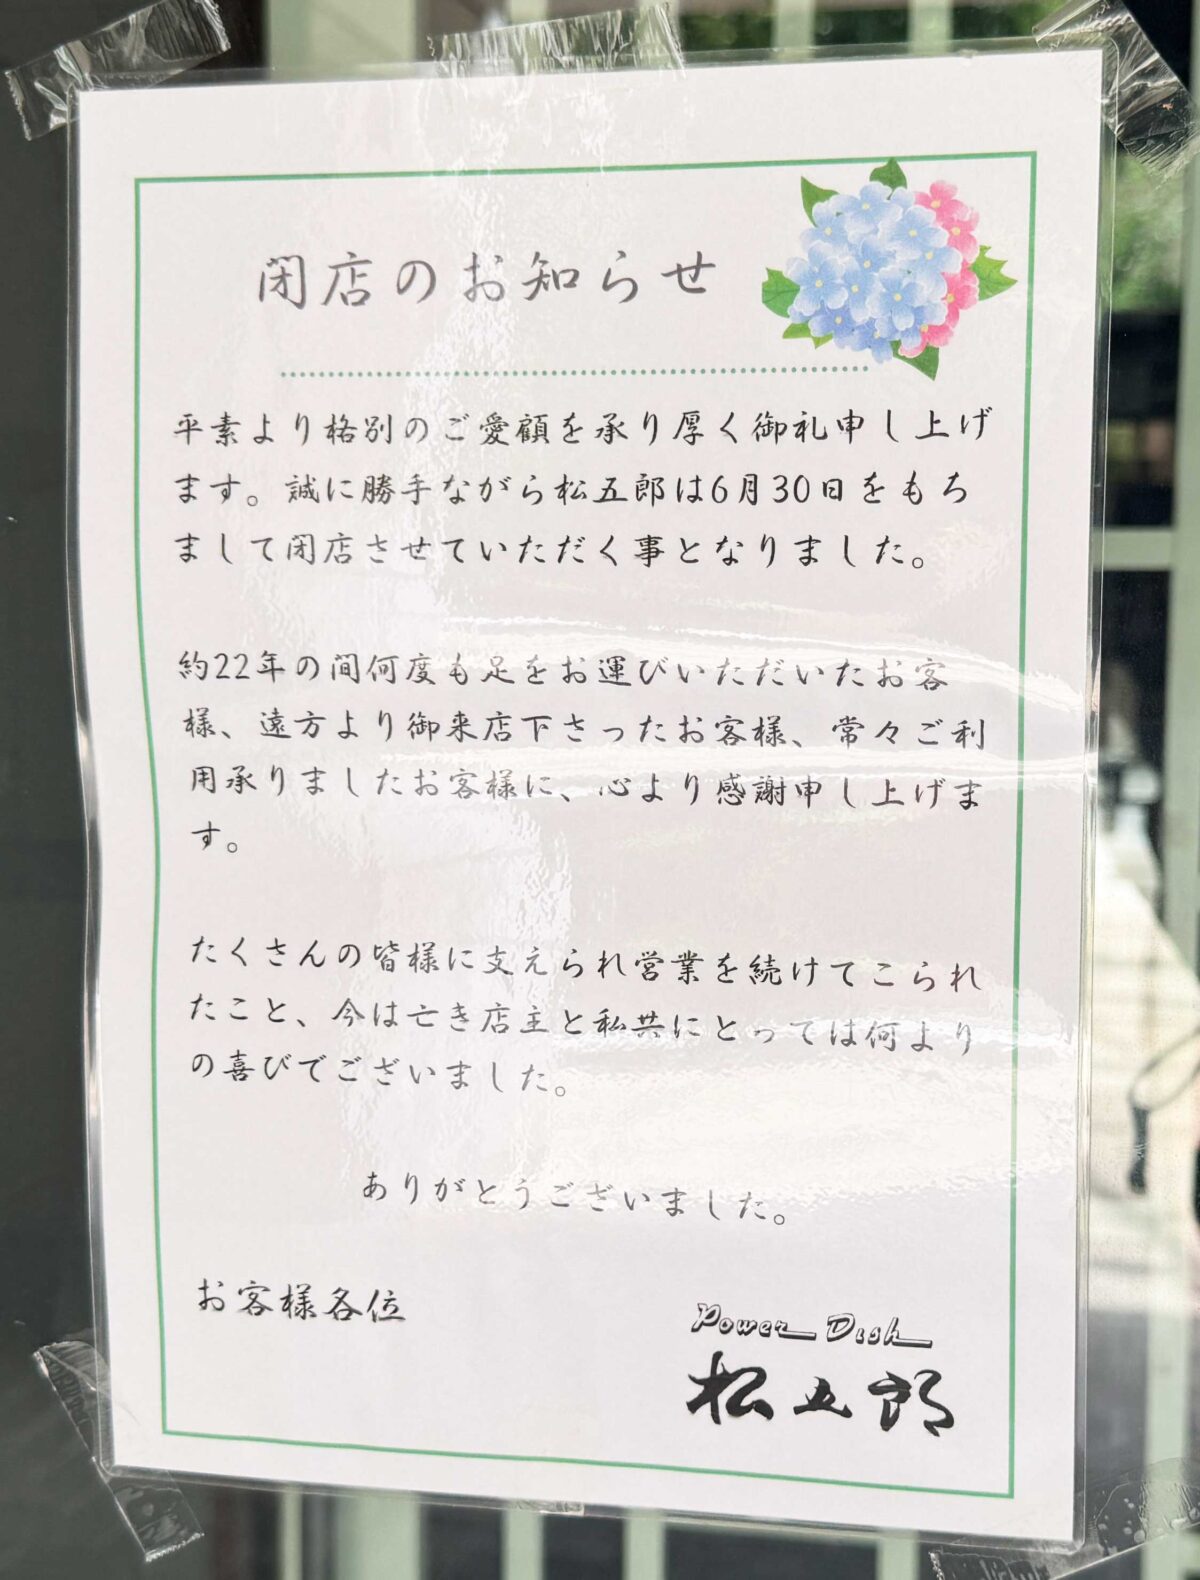 閉店のお知らせ
平素より格別のご愛顧を承り厚く御礼申し上げ
ます。誠に勝手ながら松五郎は6月30日をもち
まして閉店させていただく事となりました。
約22年の間何度も足をお運びいただいたお客
様、遠方より御来店下さったお客様、常々ご利
用承りましたお客様に、心より感謝申し上げま
す。
たくさんの皆様に支えられ営業を続けてこられ
たこと、今は亡き店主と私共にとっては何より
の喜びでございました。
ありがとうございました。
お客様各位
Power Dish
松五郎